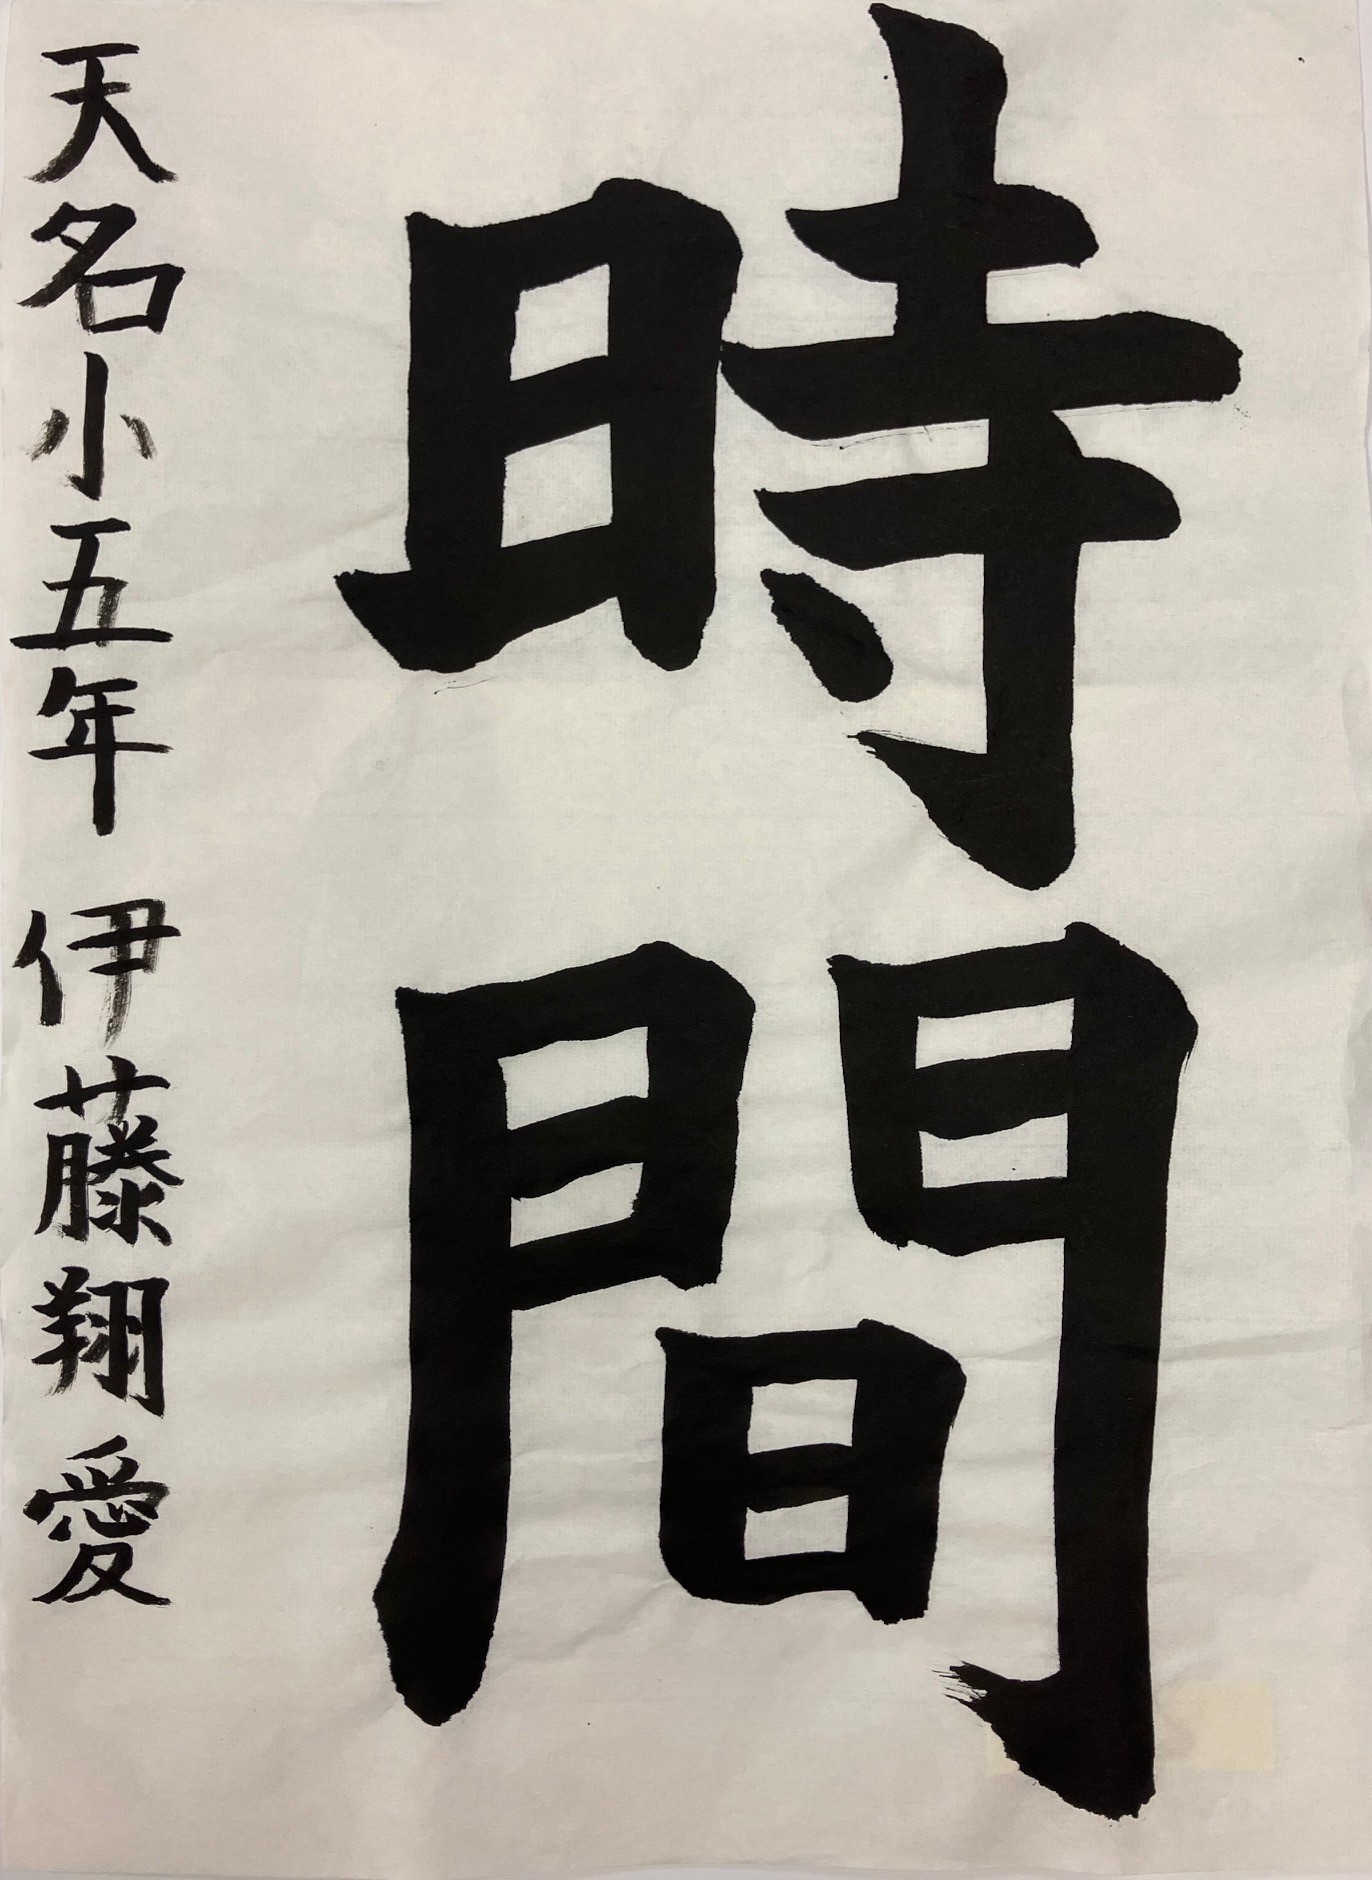 時間
天名小五年 伊藤翔愛